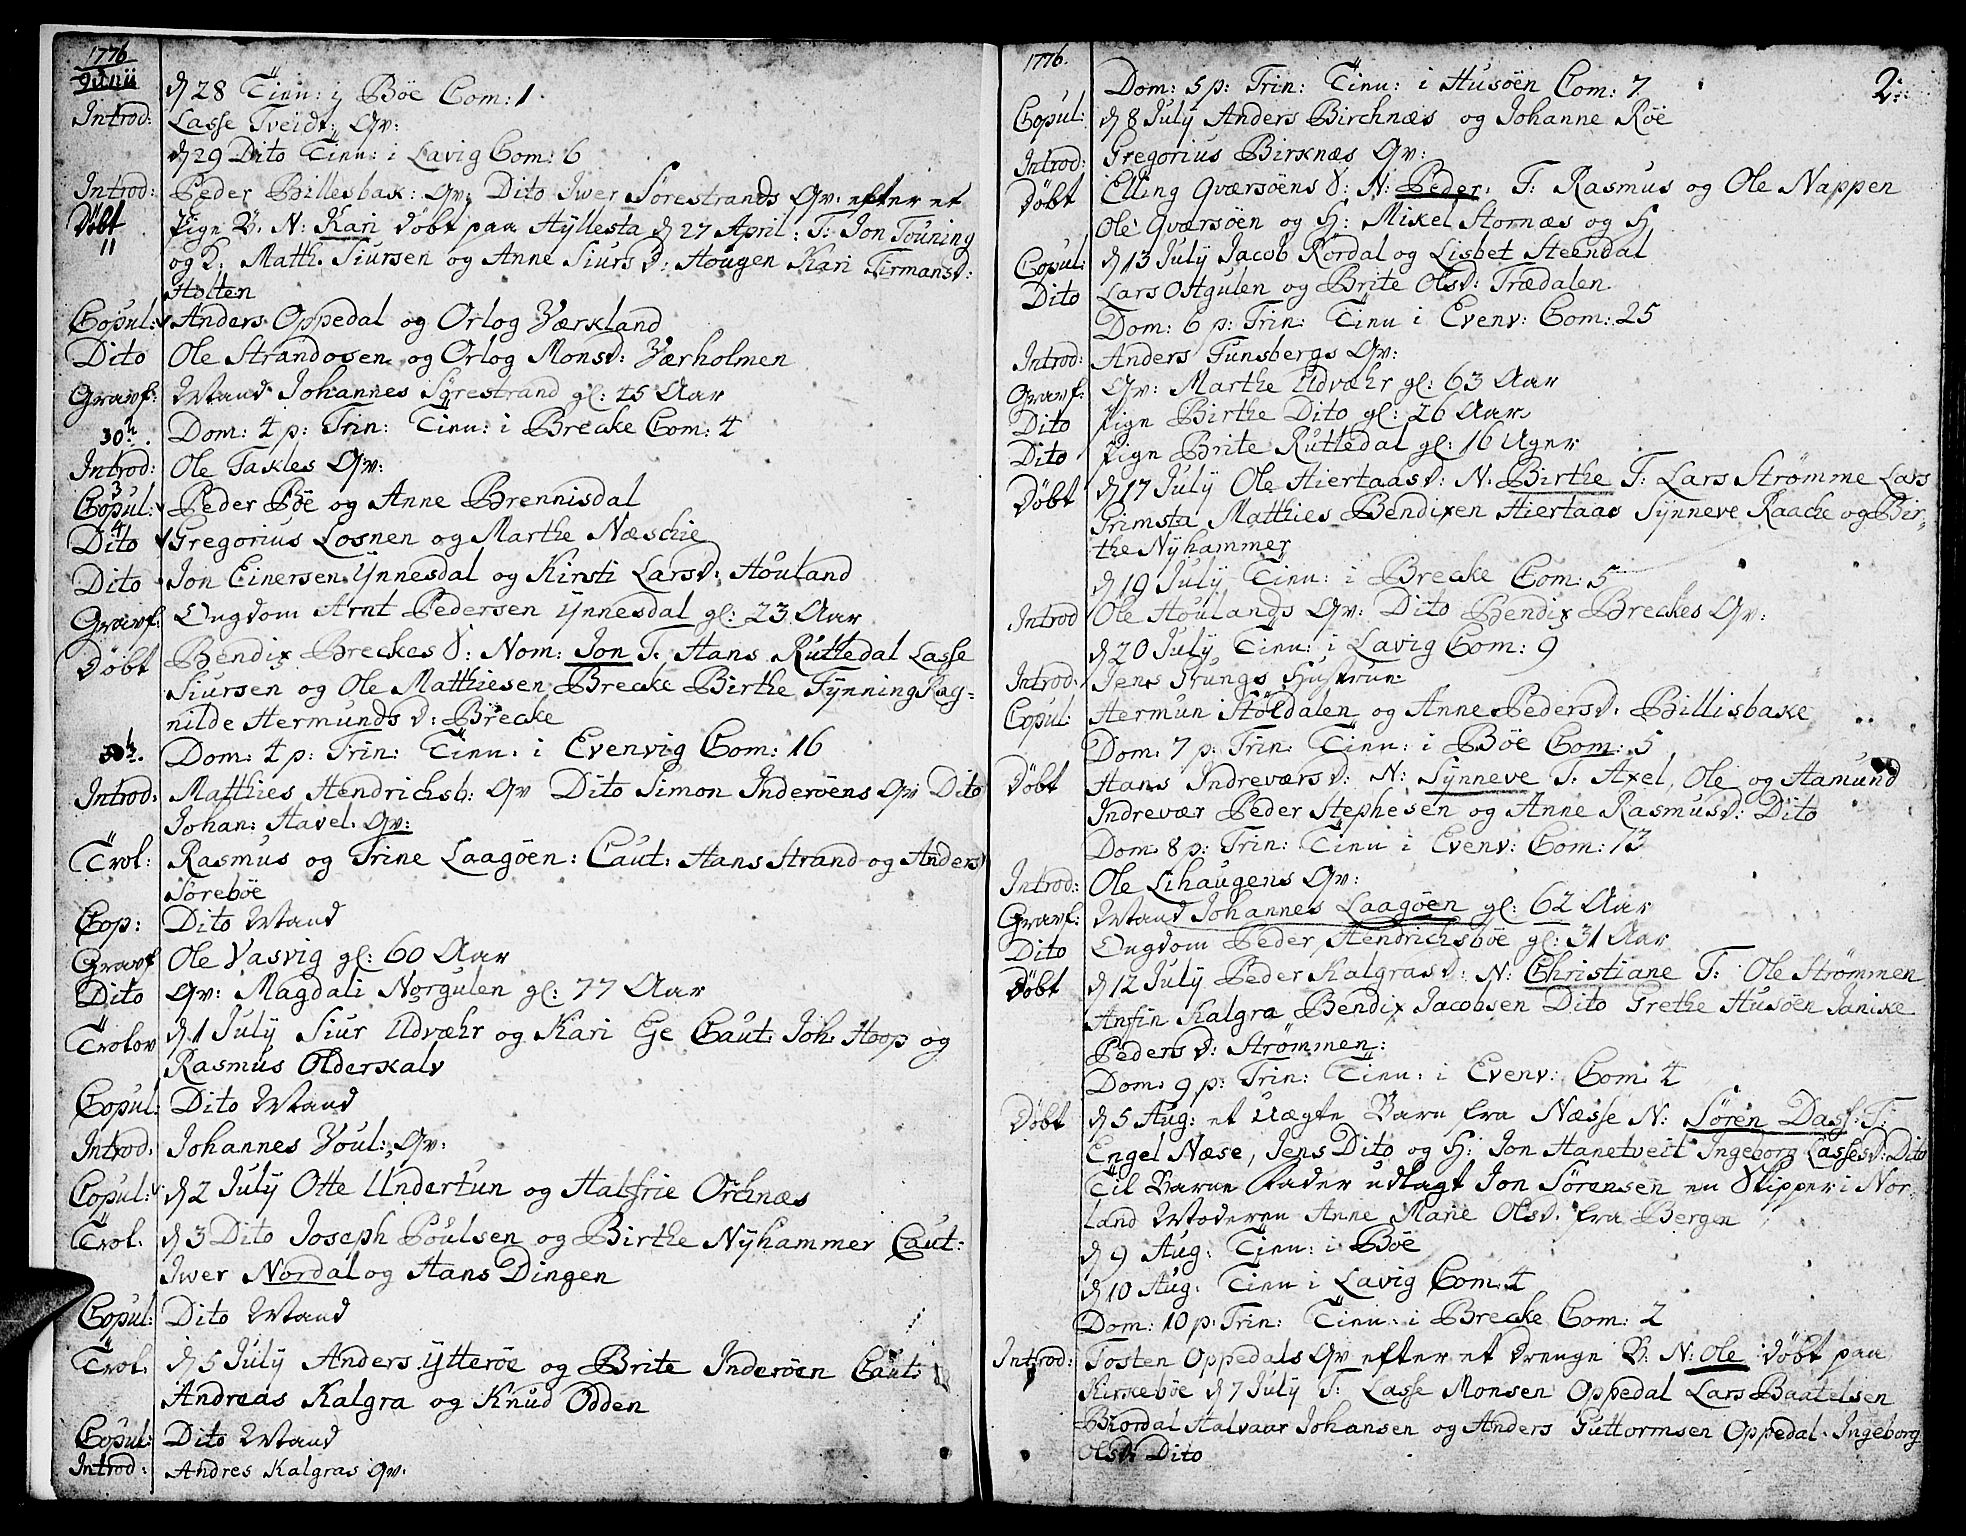 1776
Junii
d 28 Tienn: i Böe Com: 1
Introd: Lasse Tveidt: Qv:
d 29 Dito Tienn: i Lavig Com: 6
Introd: Peder Billesbak: Qv: Dito Iwer Sørestrands Qv: efter et
Döbt Pige B. N: Kari döbt paa Hyllestad d 27 April: F: Jon Touning
11 og H: Math. Siursen og Anne Siursd: Hougen Kari Tirmansd:
Holten
Copul: Anders Oppedal og Orlog Værkland
Dito Ole Strandosen og Orlog Monsd: Værholmen
Gravf: Mand Johannes Syrestrand gl: 45 Aar
30te. Dom: 4 p: Trin: Tienn: i Brecke Com: 4
Introd: Ole Takles Qv:
3 Copul: Peder Böe og Anne Brennisdal
4 Dito Gregorius Losnen og Marthe Næschie
Dito Jon Einersen Ynnesdal og Kirsti Larsd: Houland
Gravf: Ungdom Arnt Pedersen Ynnesdal gl: 23 Aar
Döbt Bendix Breckes B: Nom: Jon F: Hans Ruttedal Lasse
Siursen og Ole Mathiesen Brecke Birthe Tynning Rag-
nilde Hermundsd: Brecke
Dom: 4 p: Trin: Tienn: i Evenvig Com: 16
Introd: Matthies Hendrichsb: Qv Dito Simon Inderöens Qv Dito
Johan: Havel. Qv:
Trol: Rasmus og Trine Laagöen: Caut: Hans Strand og Anders
Sörebøe
Cop: Dito Mand
Gravf Ole Vasvig gl: 60 Aar
Dito Qv: Magdali Norgulen gl: 77 Aar
Trolov d 1 July Siur Udvæhr og Kari Ge Caut: Joh: Hoop og
Rasmus Olderkalv
Copul: Dito Mand
Introd: Johannes Youl: Qv:
Copul: d 2 July Otte Undertun og Halsfrie Orchnæs
Trol: d 3 Dito Joseph Poulsen og Birthe Nyhammer Caut:
Iwer Nordal og Hans Dingen
Copul: Dito Mand
Trol: d 5 July Anders Ytteröe og Brite Inderöen Caut:
Andreas Kalgra og Knud Odden
Copul: Dito Mand
Introd: Andres Kalgras Qv:
1776. 2:
Dom: 5 p: Trin: Tienn: i Husöen Com: 7
Copul: d 8 July Anders Birchnæs og Johanne Röe
Introd: Gregorius Birknæs Qv:
Döbt Elling Qværsöens B: N: Peder. F: Rasmus og Ole Nappen
Ole Qværsöen og H: Mikel Stornæs og H
Copul: d 13 July Jacob Rordal og Lisbet Steendal
Dito Lars Ostgulen og Brite Olsd: Trædalen
Dom: 6 p: Trin: Tienn i Evenv: Com: 25
Introd: Anders Tunsbergs Qv:
Gravf: Qv: Marthe Udvæhr gl: 63 Aar
Dito Pige Birthe Dito gl: 26 Aar
Dito Pige Brite Ruttedal gl: 16 Uger
Döbt d 17 July Ole Hiertaas B: N: Birthe F: Lars Strømme Lars
Grimsta Matthies Bendixen Hiertaas Synneve Raacke og Bir-
the Nyhammer
d 19 July Tienn: i Brecke Com: 5
Introd Ole Houlands Qv: Dito Bendix Breckes Qv:
d 20 July Tienn: i Lavig Com: 9
Introd: Jens Grungs Hustrue
Copul: Hermun Stöldalen og Anne Pedersd. Billisbake
Dom: 7 p: Trin: Tienn: i Böe Com: 5
Döbt Hans Indreværs B: N: Synneve F: Axel, Ole og Aamund
Indrevær Peder Stephesen og Anne Rasmusd: Dito
Dom: 8 p: Trin: Tienn i Evenv: Com: 13
Introd: Ole Lihaugens Qv:
Gravf: Mand Johannes Laagöen gl: 62 Aar
Dito Ungdom Peder Hendrichsbøe gl: 31 Aar
Döbt d 12 July Peder Kalgras B: N: Christiane F: Ole Strømmen
Anfin Kalgra Bendix Jacobsen Dito Grethe Husöen Janike
Pedersd: Strømmen:
Dom: 9 p: Trin: Tienn: i Evenv: Com: 4
Döbt d 5 Aug: et Uægte Barn fra Næsse N: Søren Dass: F:
Engel Næse, Jens Dito og H: Jon Hanetveit Ingeborg Lassesd: Dito
Til Barne Fader udlagt Jon Sørensen en Skipper i Nor-
land Moderen Anne Marie Olsd. fra Bergen
d 9 Aug: Tienn: i Böe
d 10 Aug: Tienn i Lavig Com: 4
Dom: 10 p: Trin: Tienn: i Brecke Com: 2
Introd: Tosten Oppedals Qv efter et Drenge B: N: Ole döbt paa
Kirkebøe d 7 July F: Lasse Monsen Oppedal Lars Baatelsen
Bordal Halvaar Johansen og Anders Guttormsen Oppedal Ingeborg
Olsd: Dito